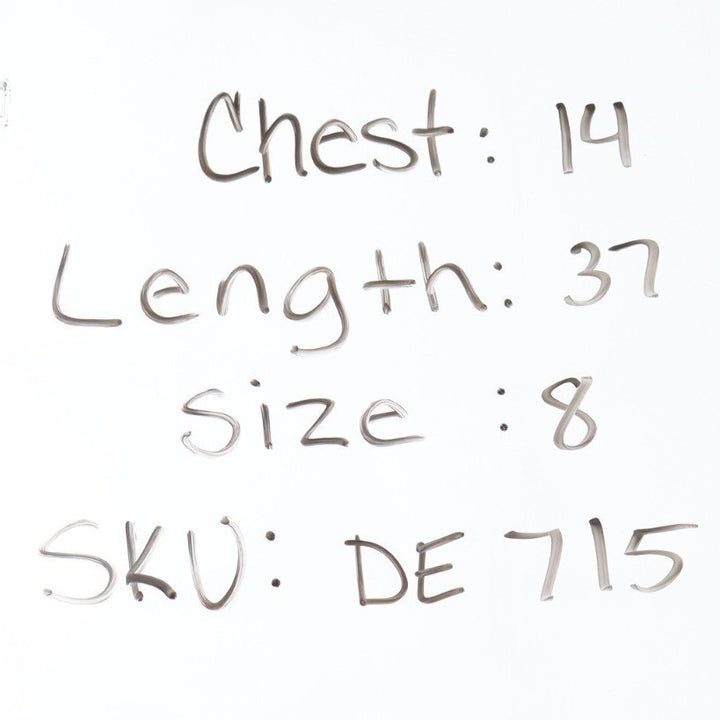 Chest: 14
Length: 37
Size : 8
SKU: DE 715